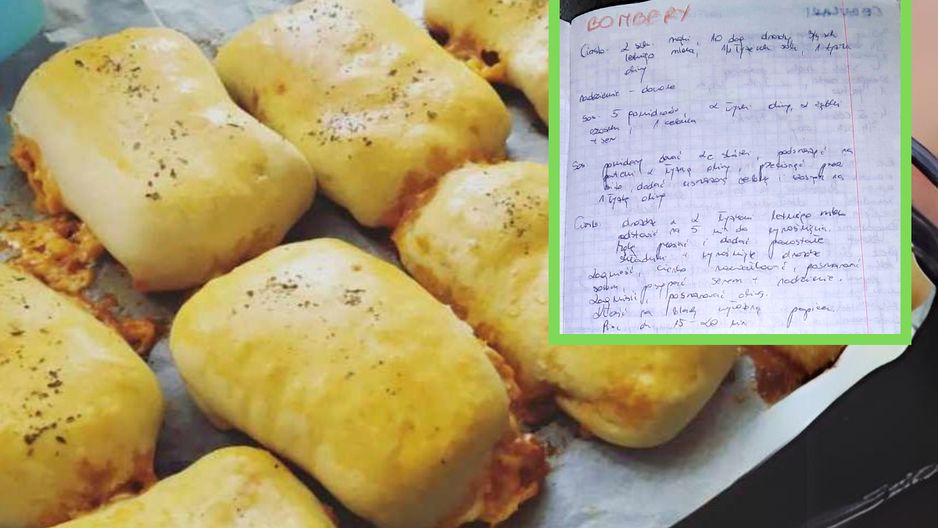 BOMBERY
Ciasto: 2 szk. mąki, 10 dag drożdży, 3/4 szk
letniego mleka, 1/4 łyżeczki soli, 1 łyżka
oliwy
nadzienie - dowolne
Sos: 5 pomidorów, 2 łyżki oliwy, 2 ząbki
czosnku, 1 cebula
+ ser
Sos pomidory obrać ze skórki, podsmażyć na
patelni z łyżką oliwy, przecisnąć przez
sito, dodać usmażoną cebulę i czosnek na
1 łyżce oliwy
Ciasto: drożdże z 2 łyżkami letniego mleka
odstawić na 5 min do wyrośnięcia.
Mąkę przesiać i dodać pozostałe
składniki + wyrośnięte drożdże
zagnieść, ciasto rozwałkować, posmarować
sosem, posypać serem + nadzienie.
zagnieść, posmarować oliwą.
ułożyć na blachę wyłożoną papierem.
Piec ok. 15-20 min